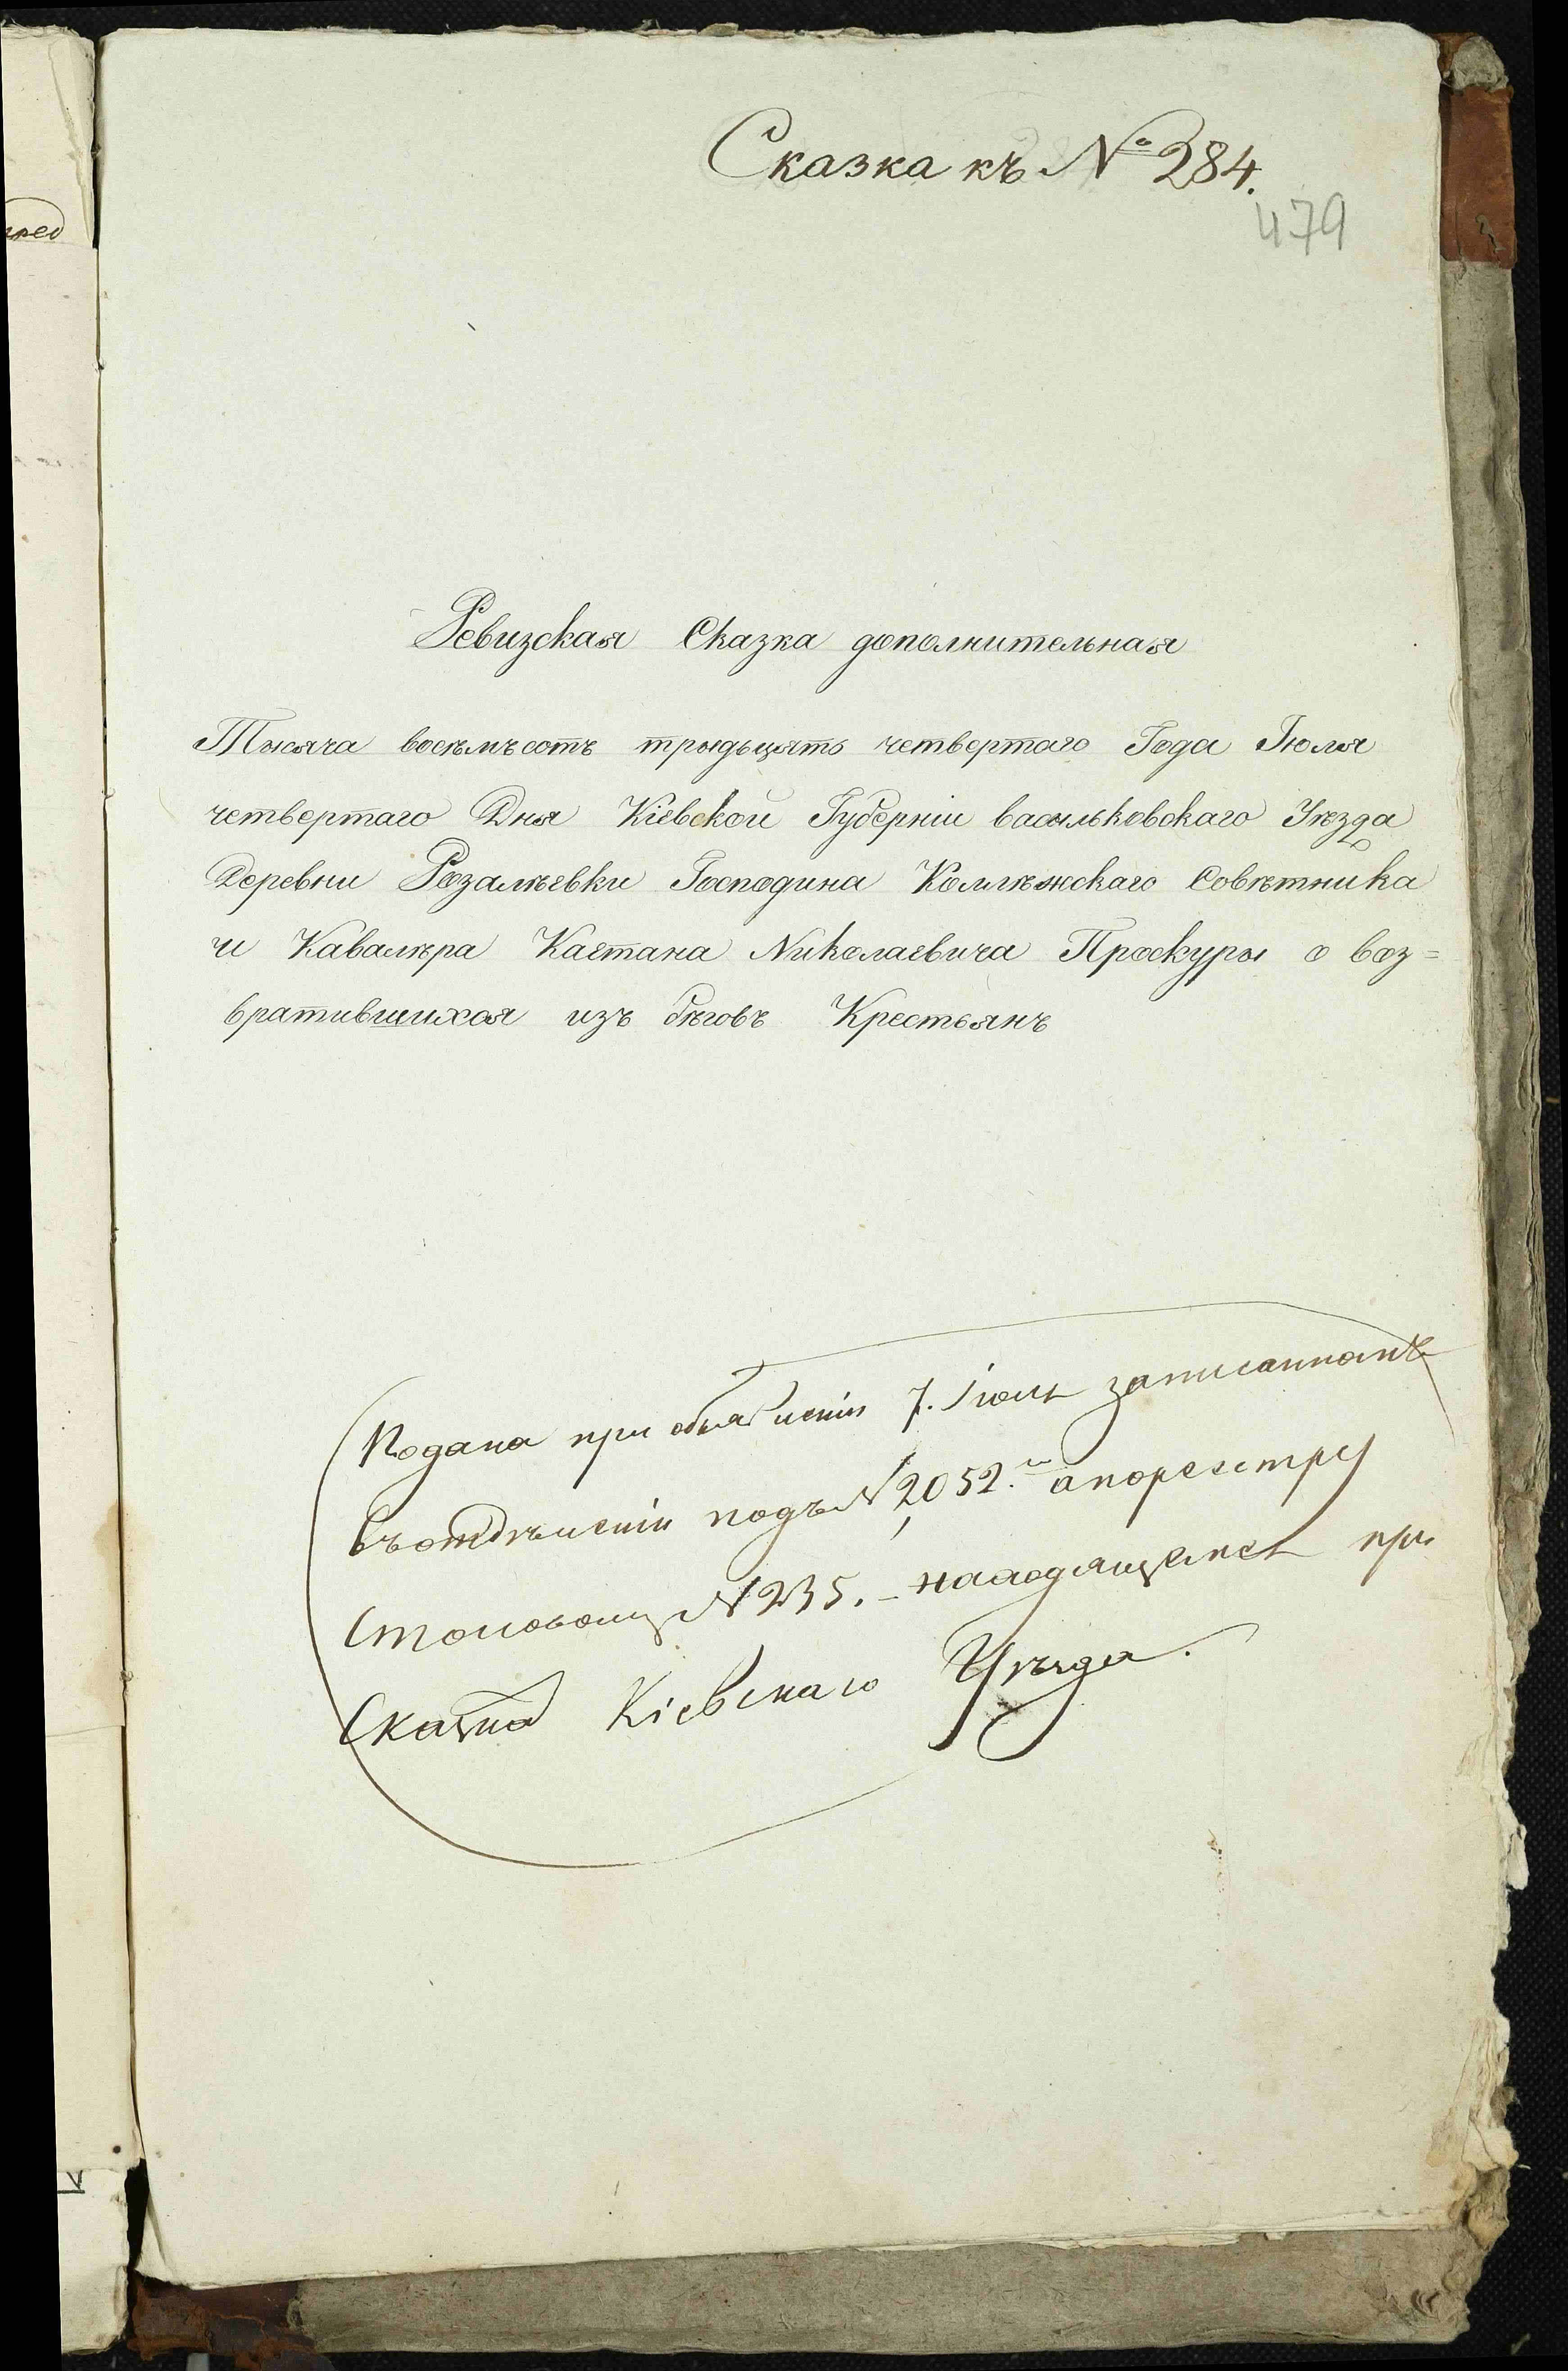 Сказка къ № 284.
479
Ревизская Сказка дополнительная
Тысяча восѣмъсотъ трыдьцять четвертаго Года Іюля
четвертаго Дня Кіевской Губерніи васильковскаго Уѣзда
Деревни Розалѣевки Господина Коллѣжскаго Совѣтника
и Кавалѣра Каетана Николаевича Проскуры о воз=
вратившихся изъ бѣговъ Крестьянъ
Подана при объявленіи 7. Іюля записанномъ
въ отдѣленіи подъ № 2052. а по реэстру
столовому № 235. - находящемся при
Сказкѣ Кіевскаго Уѣзда.